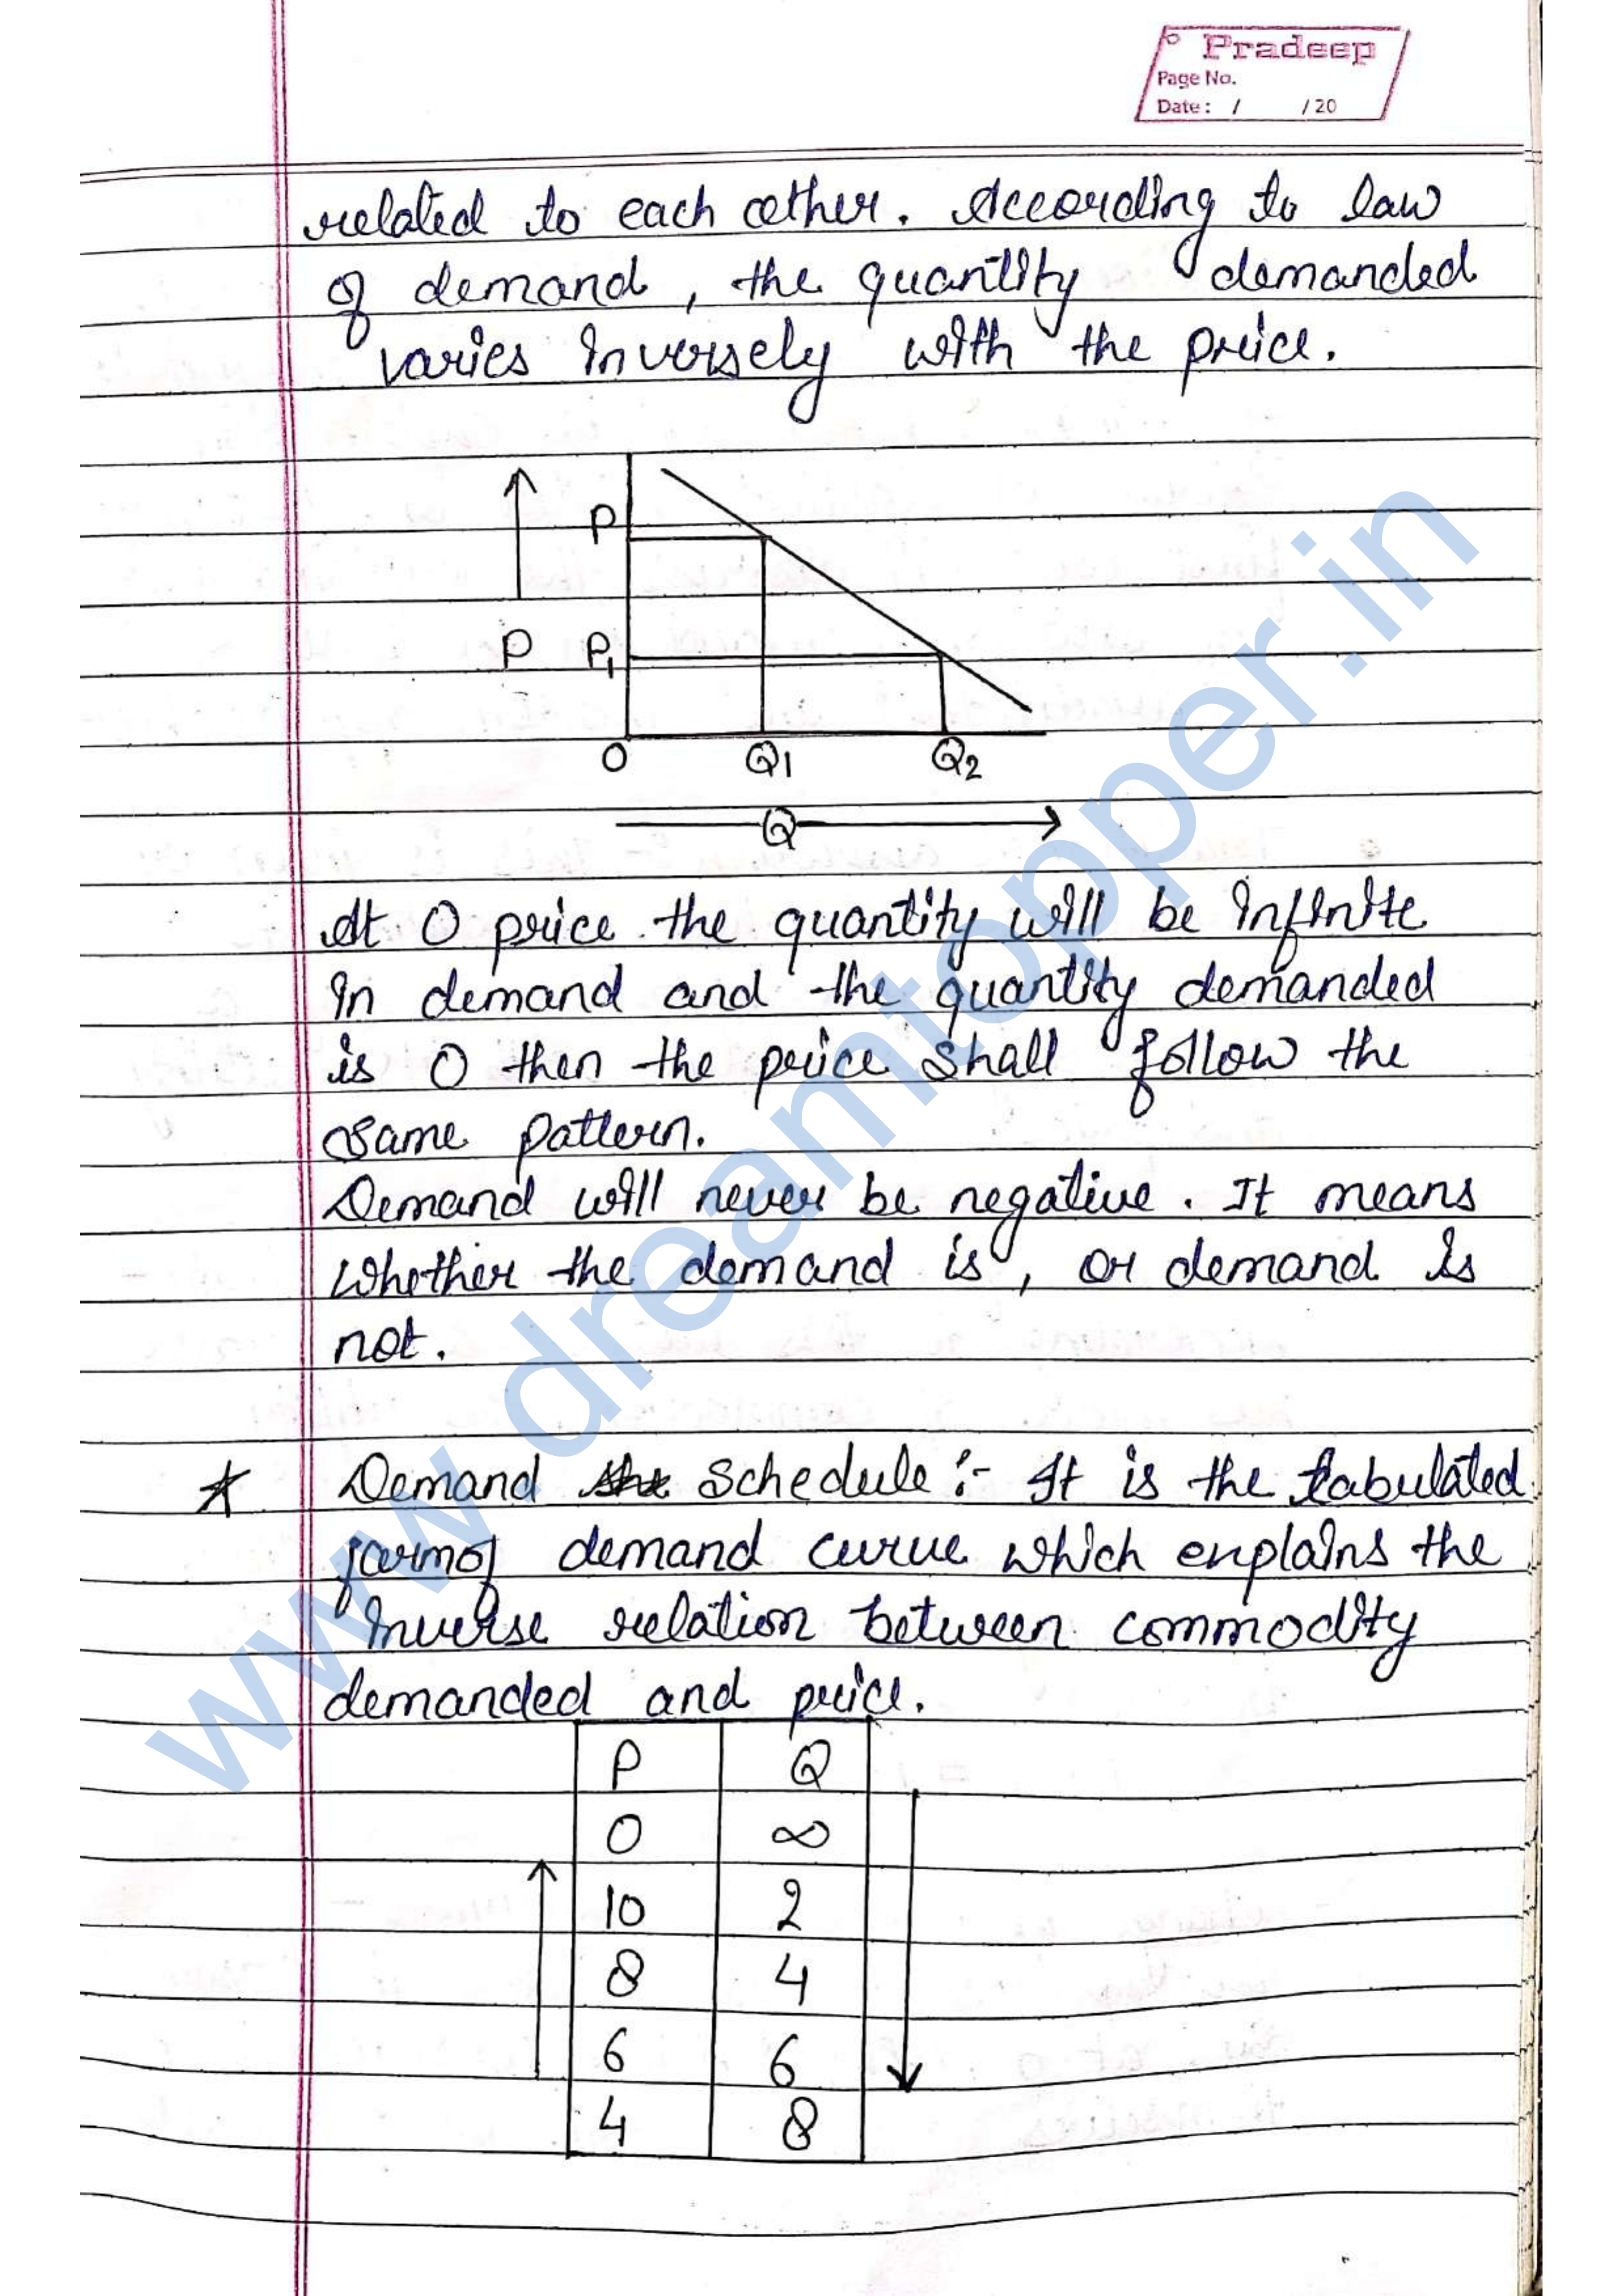 Pradeep
Page No.
Date : / /20
related to each other. According to law
of demand, the quantity demanded
varies inversely with the price.
P
P P1
O Q1 Q2
Q
At 0 price the quantity will be infinite
in demand and the quantity demanded
is 0 then the price shall follow the
same pattern.
Demand will never be negative. It means
whether the demand is, or demand is
not.
* Demand Schedule :- It is the tabulated
form of demand curve which explains the
inverse relation between commodity
demanded and price.
P Q
0 ∞
10 2
8 4
6 6
4 8
www.dreamtopper.in